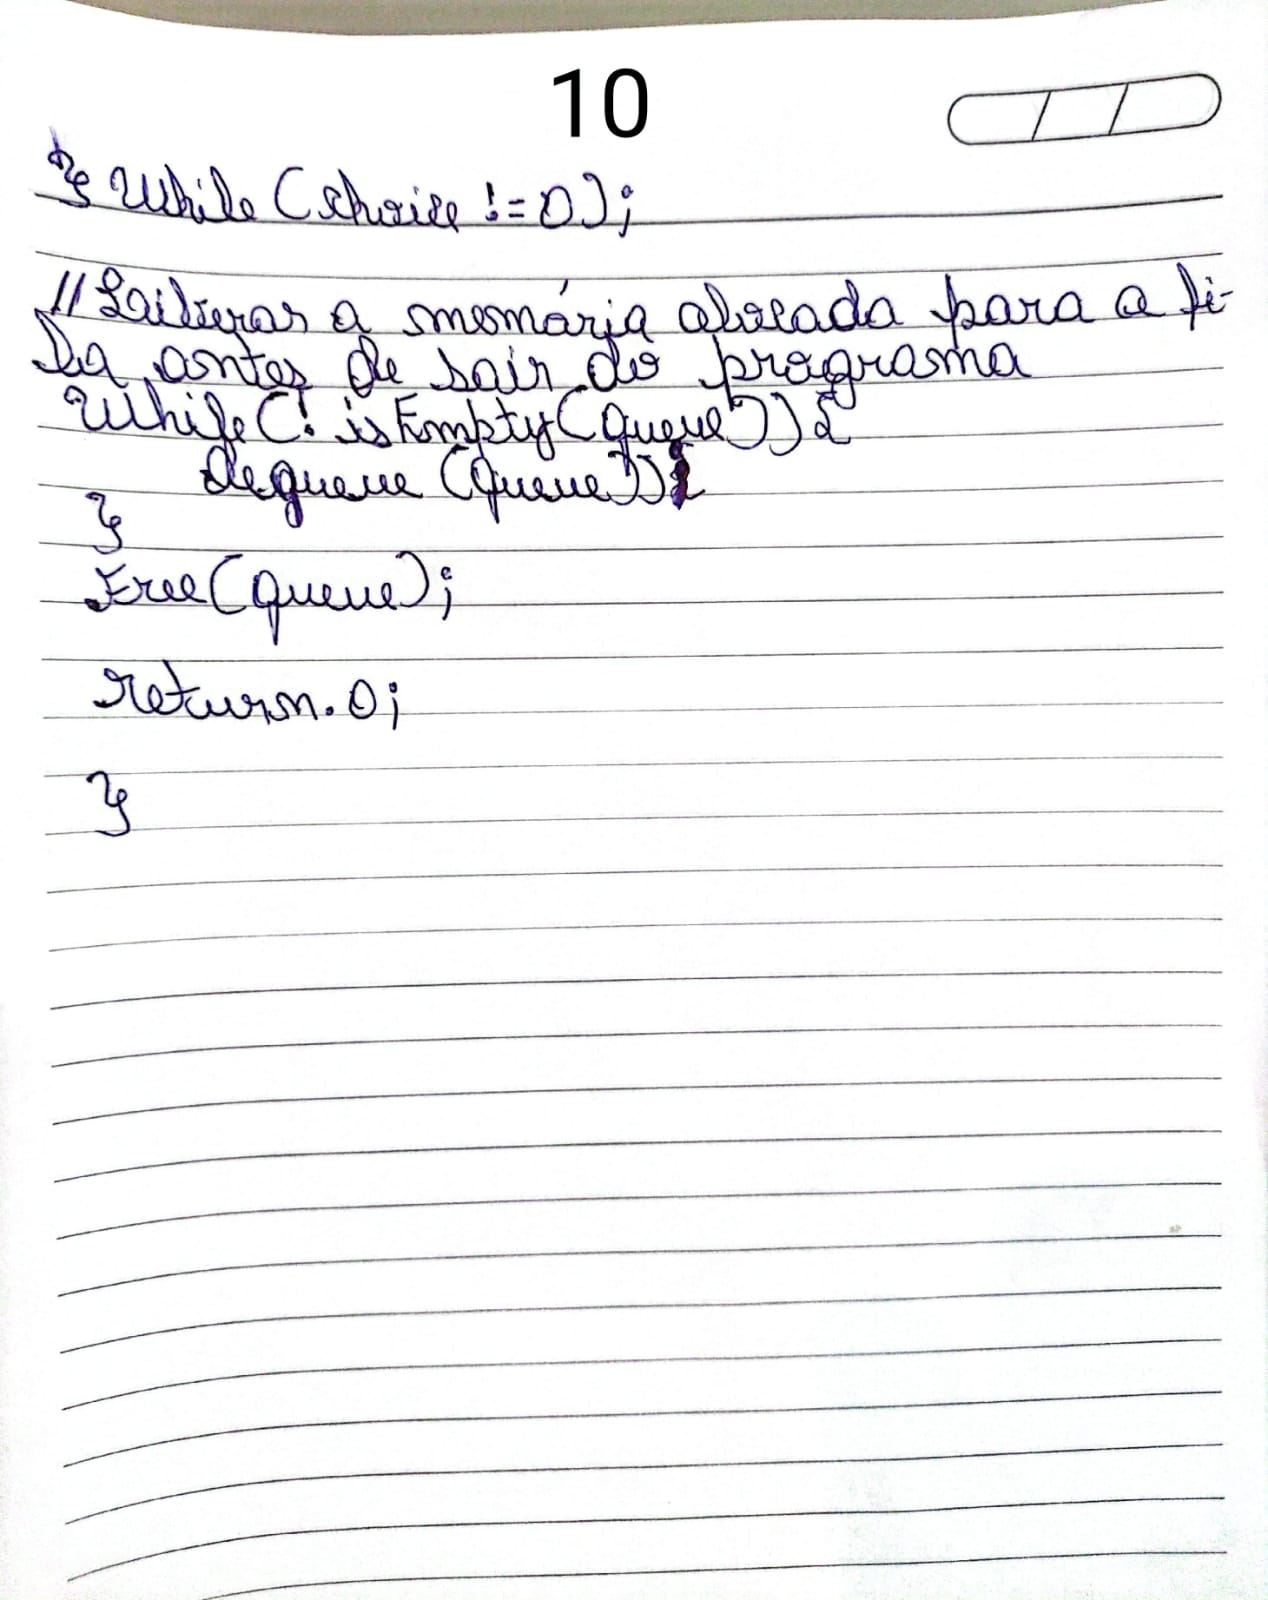 10
} While (choice != 0);
// Laiberar a memória alocada para a fi-
la antes de sair do programa
While (! isEmpty (queue)) {
dequeue (queue)) {
}
Free (queue);
return. 0;
}